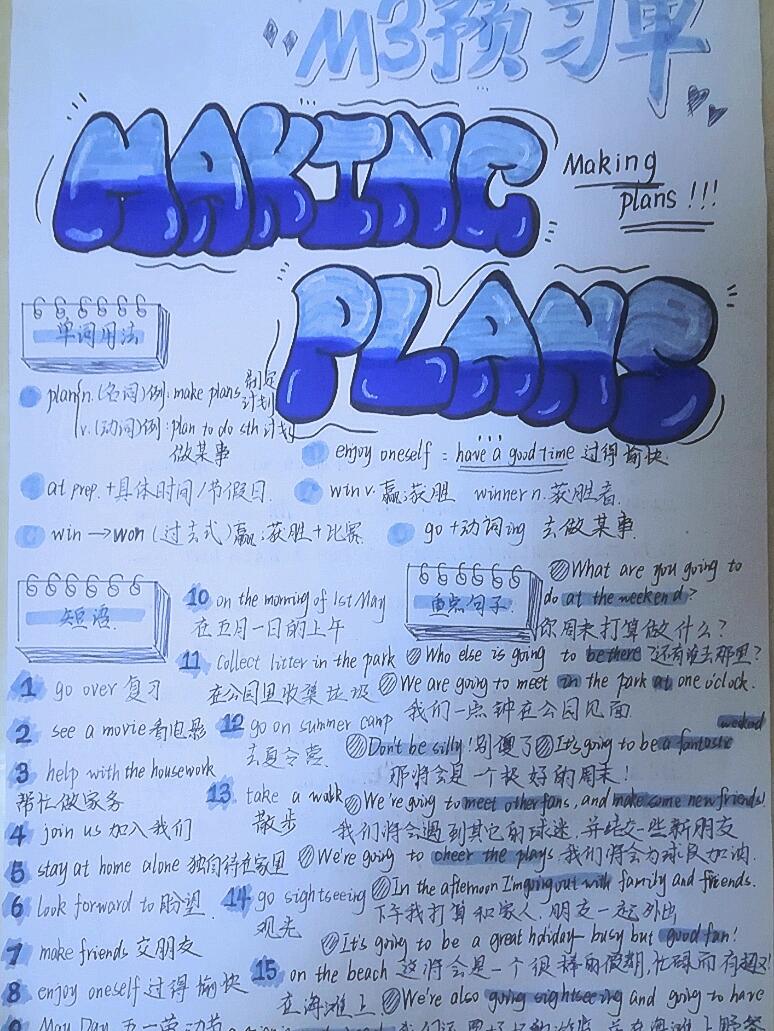 M3预习单
MAKING
Making
plans !!!
PLANS
单词用法
plan n.(名词)例: make plans 制定计划
v.(动词)例: plan to do sth 计划
做某事
enjoy oneself = have a good time 过得愉快.
at prep. +具体时间/节假日.
win v. 赢;获胜 winner n. 获胜者.
win → won (过去式) 赢;获胜+比赛
go +动词ing 去做某事.
短语.
1 go over 复习
2 see a movie 看电影
3 help with the housework
帮忙做家务
4 join us 加入我们
5 stay at home alone 独自待在家里
6 look forward to 盼望.
7 make friends 交朋友
8 enjoy oneself 过得愉快
9 May Day 五一劳动节
10 on the morning of 1st May
在五月一日的上午
11 collect litter in the park
在公园里收集垃圾
12 go on summer camp
去夏令营.
13 take a walk
散步
14 go sightseeing
观光
15 on the beach
在海滩上
重点句子.
What are you going to
do at the weekend?
你周末打算做什么?
Who else is going to be there? 还有谁去那里?
We are going to meet in the park at one o'clock.
我们一点钟在公园见面
Don't be silly! 别傻了
It's going to be a fantastic weekend
那将会是一个极好的周末!
We're going to meet other fans, and make some new friends!
我们将会遇到其它的球迷,并结交一些新朋友
We're going to cheer the plays. 我们将会为球员加油.
In the afternoon I'm going out with family and friends.
下午我打算和家人,朋友一起外出
It's going to be a great hdiday— busy but good fan!
这将会是一个很棒的假期,忙碌而有趣!
We're also going sightseeing and going to have